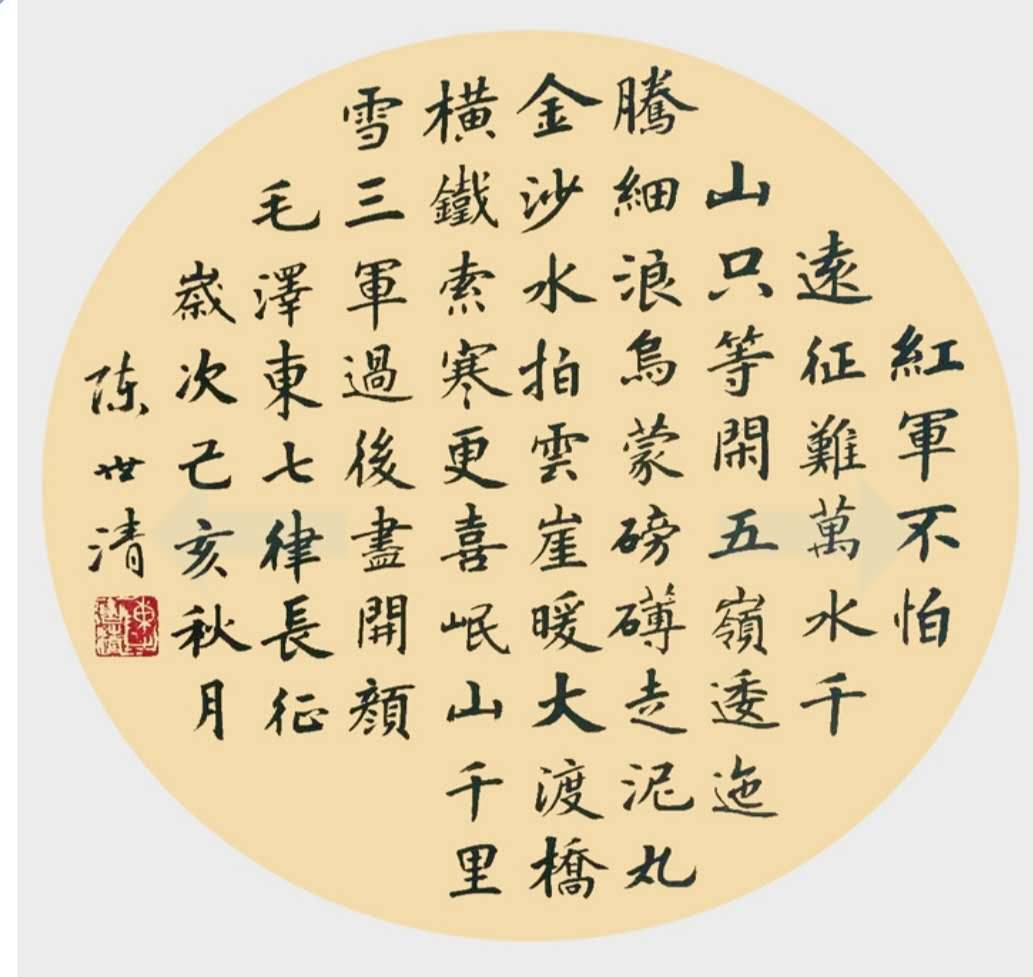 紅軍不怕
遠征難萬水千
山只等閑五嶺逶迤
騰細浪烏蒙磅礴走泥丸
金沙水拍雲崖暖大渡橋
橫鐵索寒更喜岷山千里
雪三軍過後盡開顏
毛澤東七律長征
歲次己亥秋月
陈世清